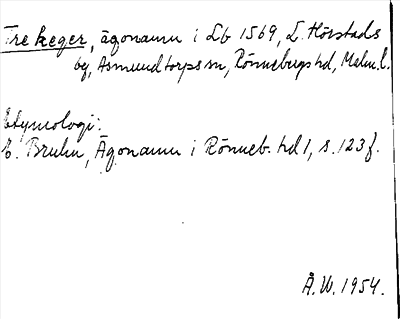 Tre keger, ägonamn i Lb 1569, L. Harstads
by, Asmundtorps sn, Rönnebergs hd, Malm. l.
Etymologi:
E. Bruhn, Ägonamn i Rönneb. hd 1, s. 123 f.
Å. W. 1954.